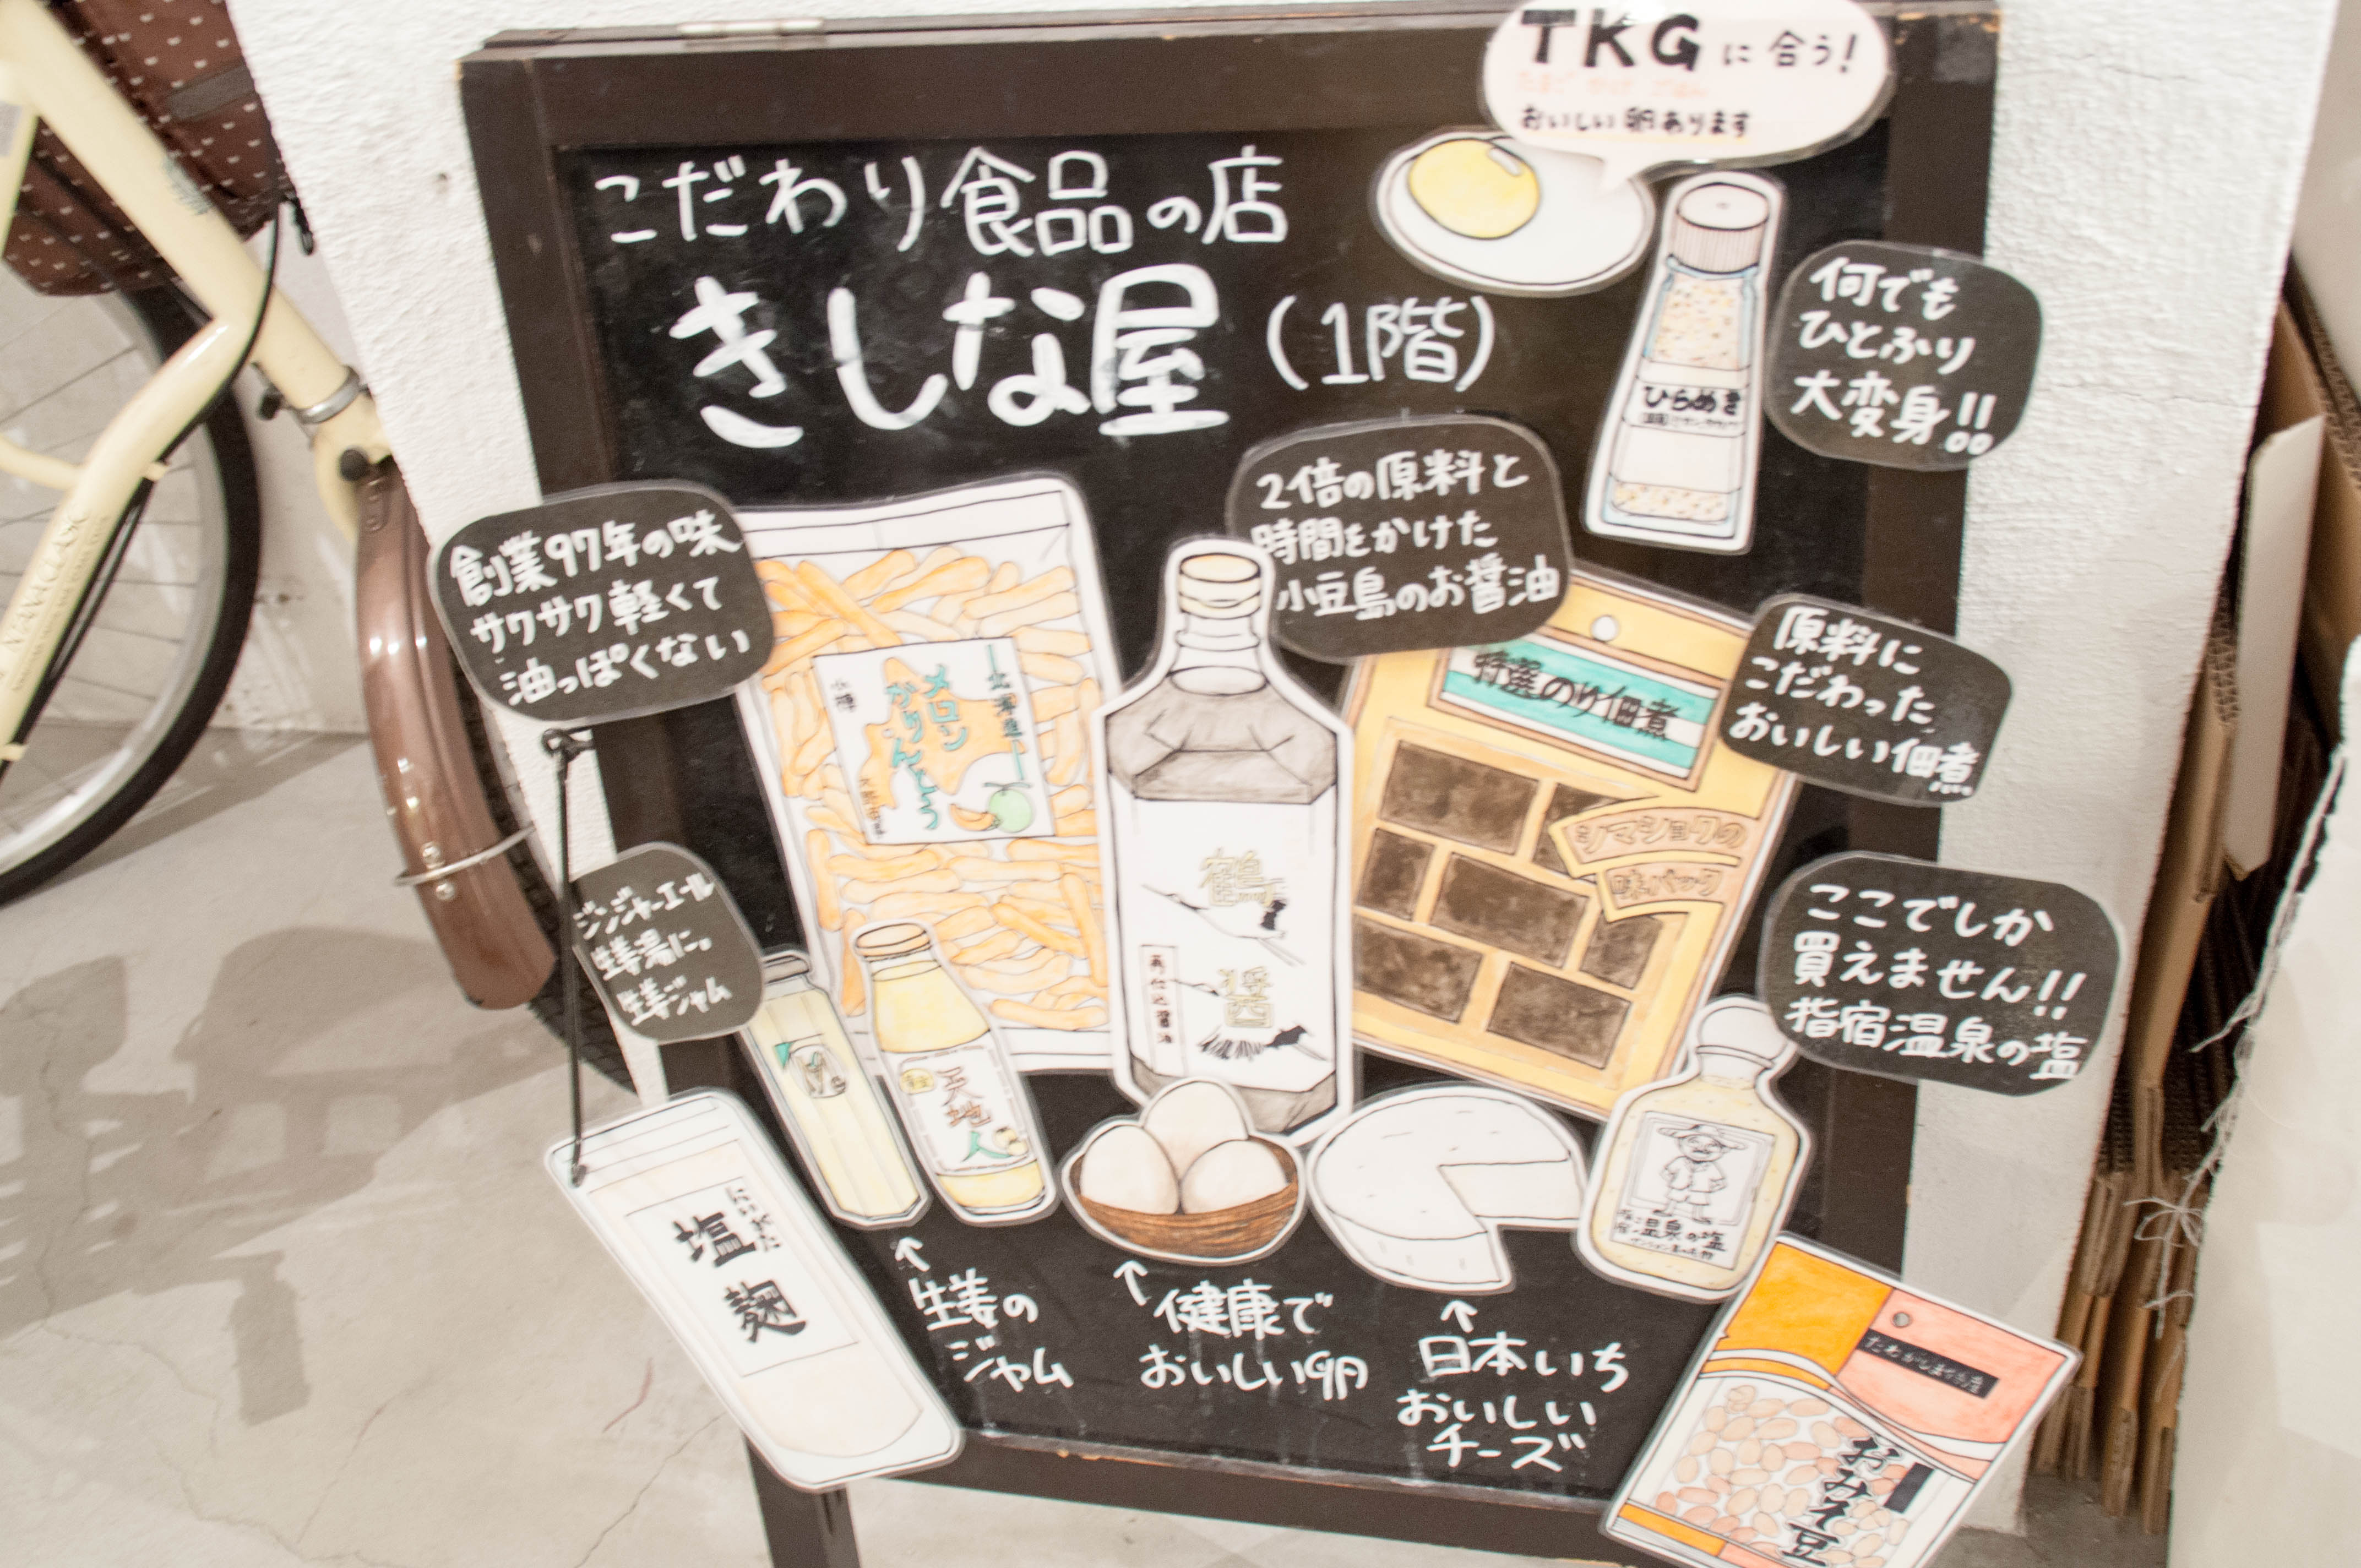 TKGに合う!
たまご かけ ごはん
おいしい卵あります
こだわり食品の店
きしな屋(1階)
何でも
ひとふり
大変身!!
ひらめき
2倍の原料と
時間をかけた
小豆島のお醤油
創業97年の味
サクサク軽くて
油っぽくない
北海道
メロン
かりんとう
特選のり佃煮
シマショクの
味パック
原料に
こだわった
おいしい佃煮
鶴醤
再仕込醤油
ジンジャーエール
生姜湯に。
生姜ジャム
天地人
ここでしか
買えません!!
指宿温泉の塩
温泉の塩
にいがた
塩麹
↑
生姜の
ジャム
↑
健康で
おいしい卵
↑
日本いち
おいしい
チーズ
おみそ豆